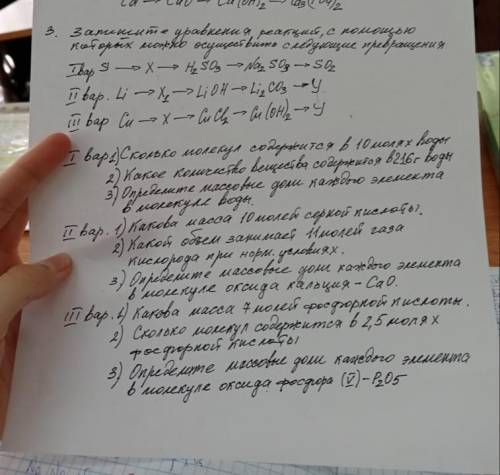 Ca → CaO → Ca(OH)₂ → Ca₃(PO₄)₂
3. Запишите уравнения реакций, с помощью
которых можно осуществить следующие превращения
I вар S → X → H₂SO₃ → Na₂SO₃ → SO₂
II вар. Li → X₂ → LiOH → Li₂CO₃ → У
III вар Cu → X → CuCl₂ → Cu(OH)₂ → У
I вар 1) Сколько молекул содержится в 10 молях воды
2) Какое количество вещества содержится в 216 г воды
3) Определите массовые доли каждого элемента
в молекуле воды.
II вар. 1) Какова масса 10 молей серной кислоты.
2) Какой объем занимает 11 молей газа
кислорода при норм. условиях.
3) Определите массовые доли каждого элемента
в молекуле оксида кальция – CaO.
III вар. 1) Какова масса 7 молей фосфорной кислоты.
2) Сколько молекул содержится в 2,5 молях
фосфорной кислоты
3) Определите массовые доли каждого элемента
в молекуле оксида фосфора (V) – P₂O5